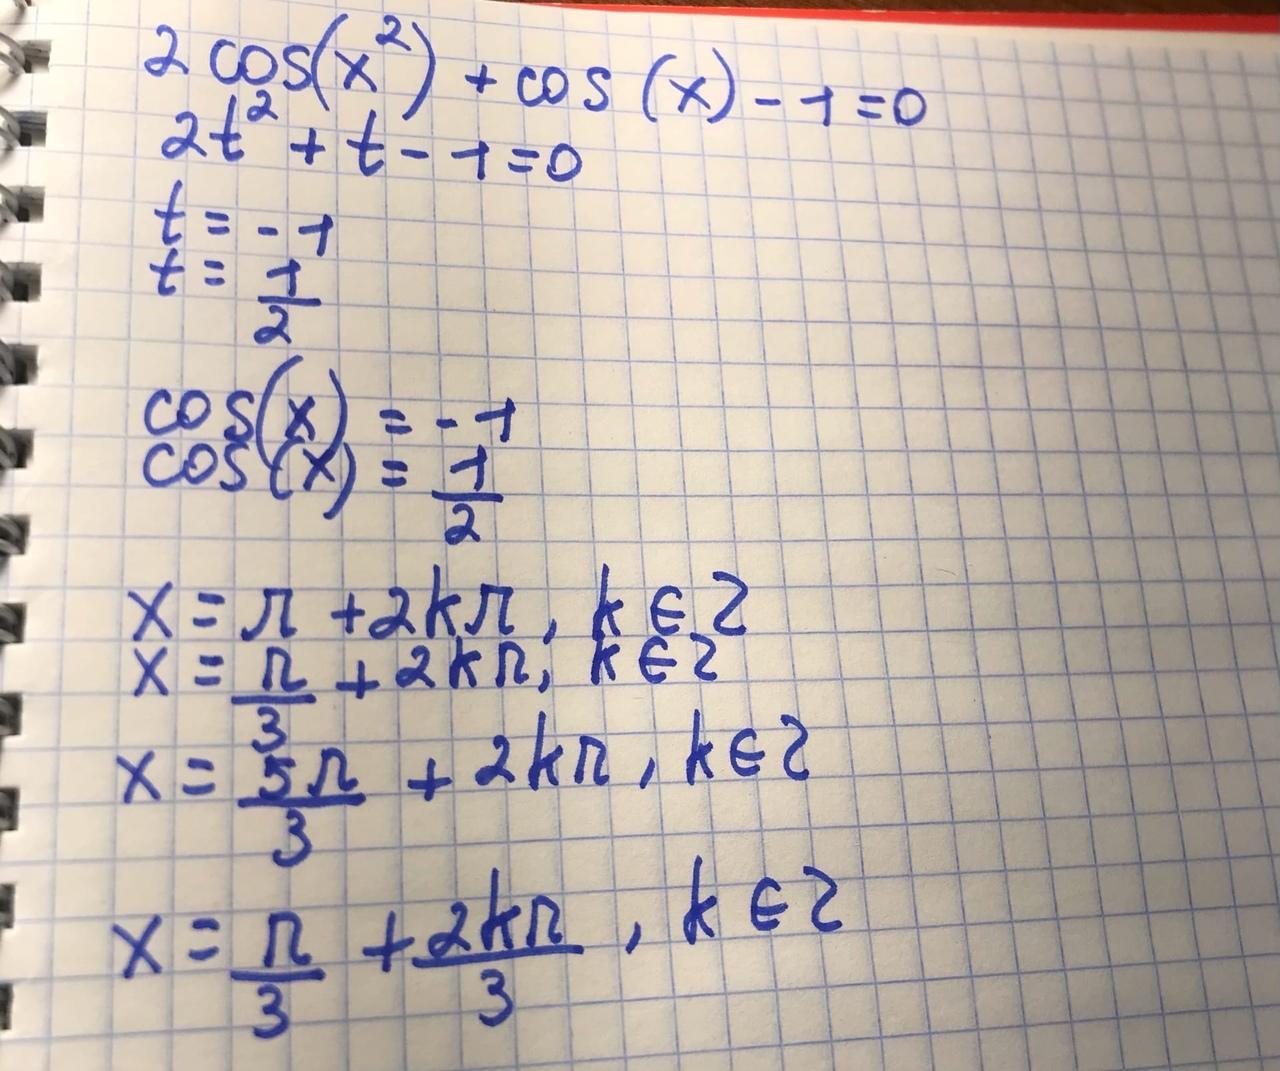 2 cos(x²) + cos (x) - 1 = 0
2t² + t - 1 = 0
t = - 1
t = 1/2
cos(x) = - 1
cos(x) = 1/2
x = π + 2kπ, k ∈ Z
x = π/3 + 2kπ, k ∈ Z
x = 5π/3 + 2kπ, k ∈ Z
x = π/3 + 2kπ/3, k ∈ Z